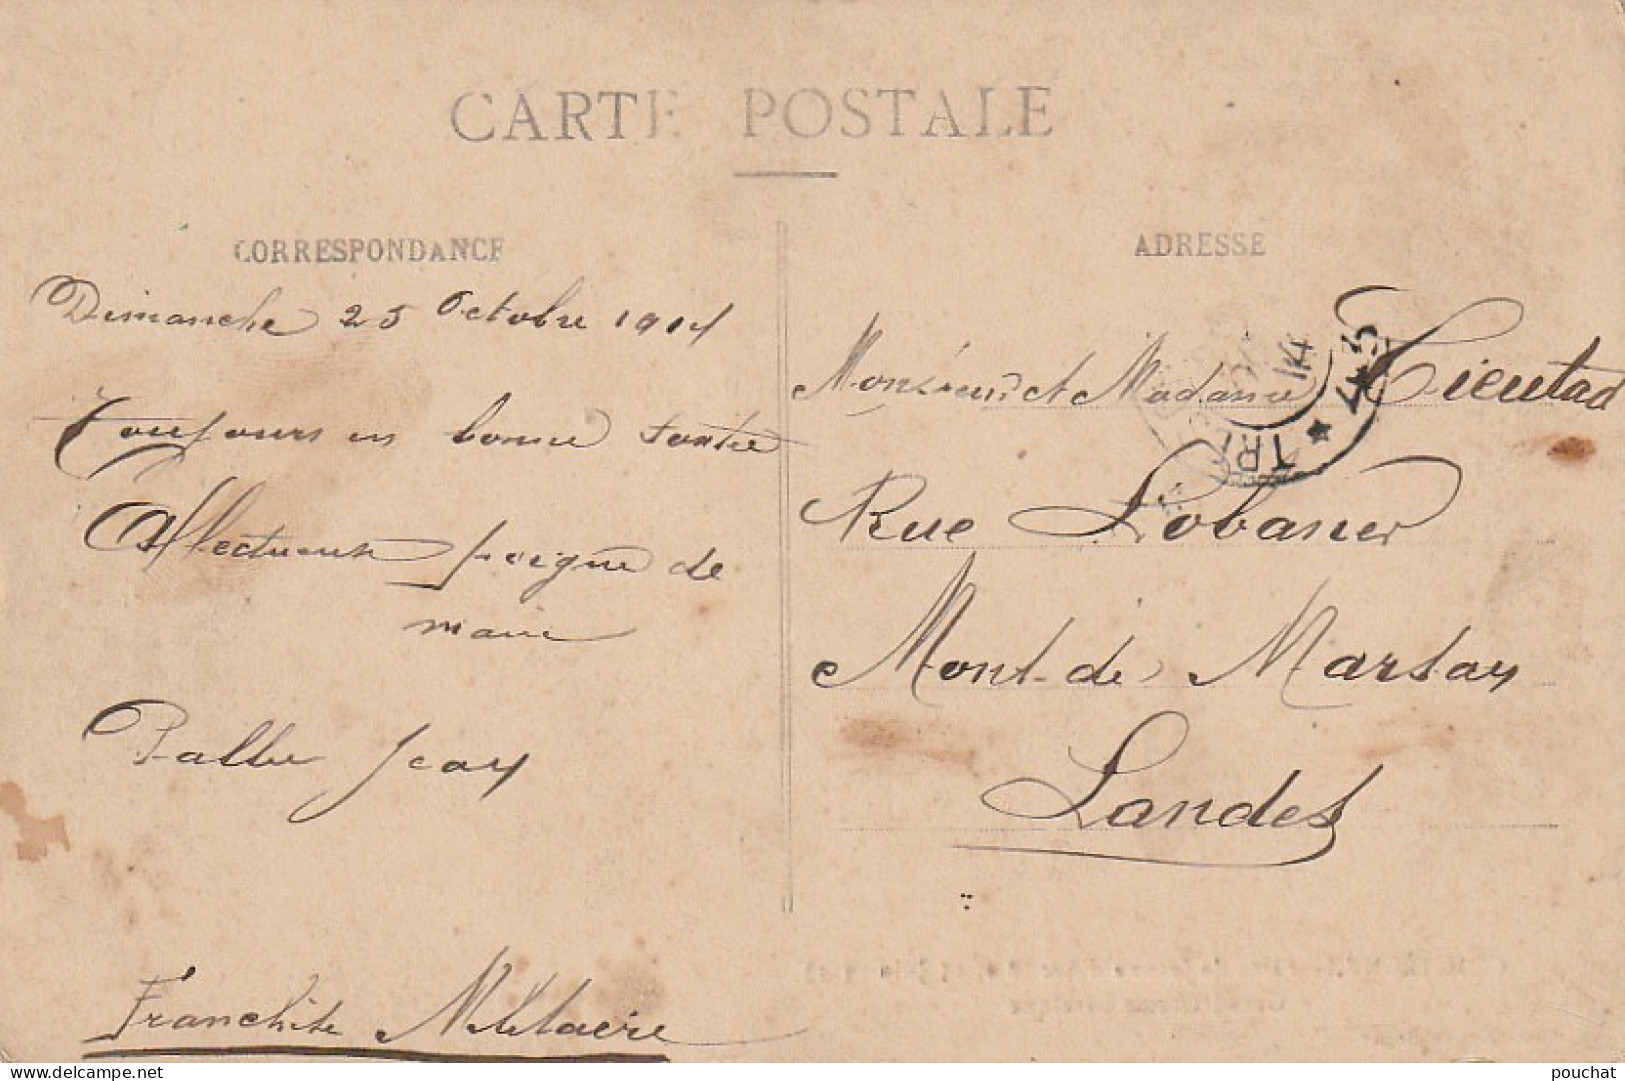 CARTE POSTALE
CORRESPONDANCE
Dimanche 25 Octobre 1914
Toujours en bonne santée
Affectueuse poigné de
main
Jean
Franchite Militaire
ADRESSE
Monsieur et Madame Cieutad
Rue Lobaner
Mont-de Marsan
Landes
TRI
14
delcampe.net
pouchat